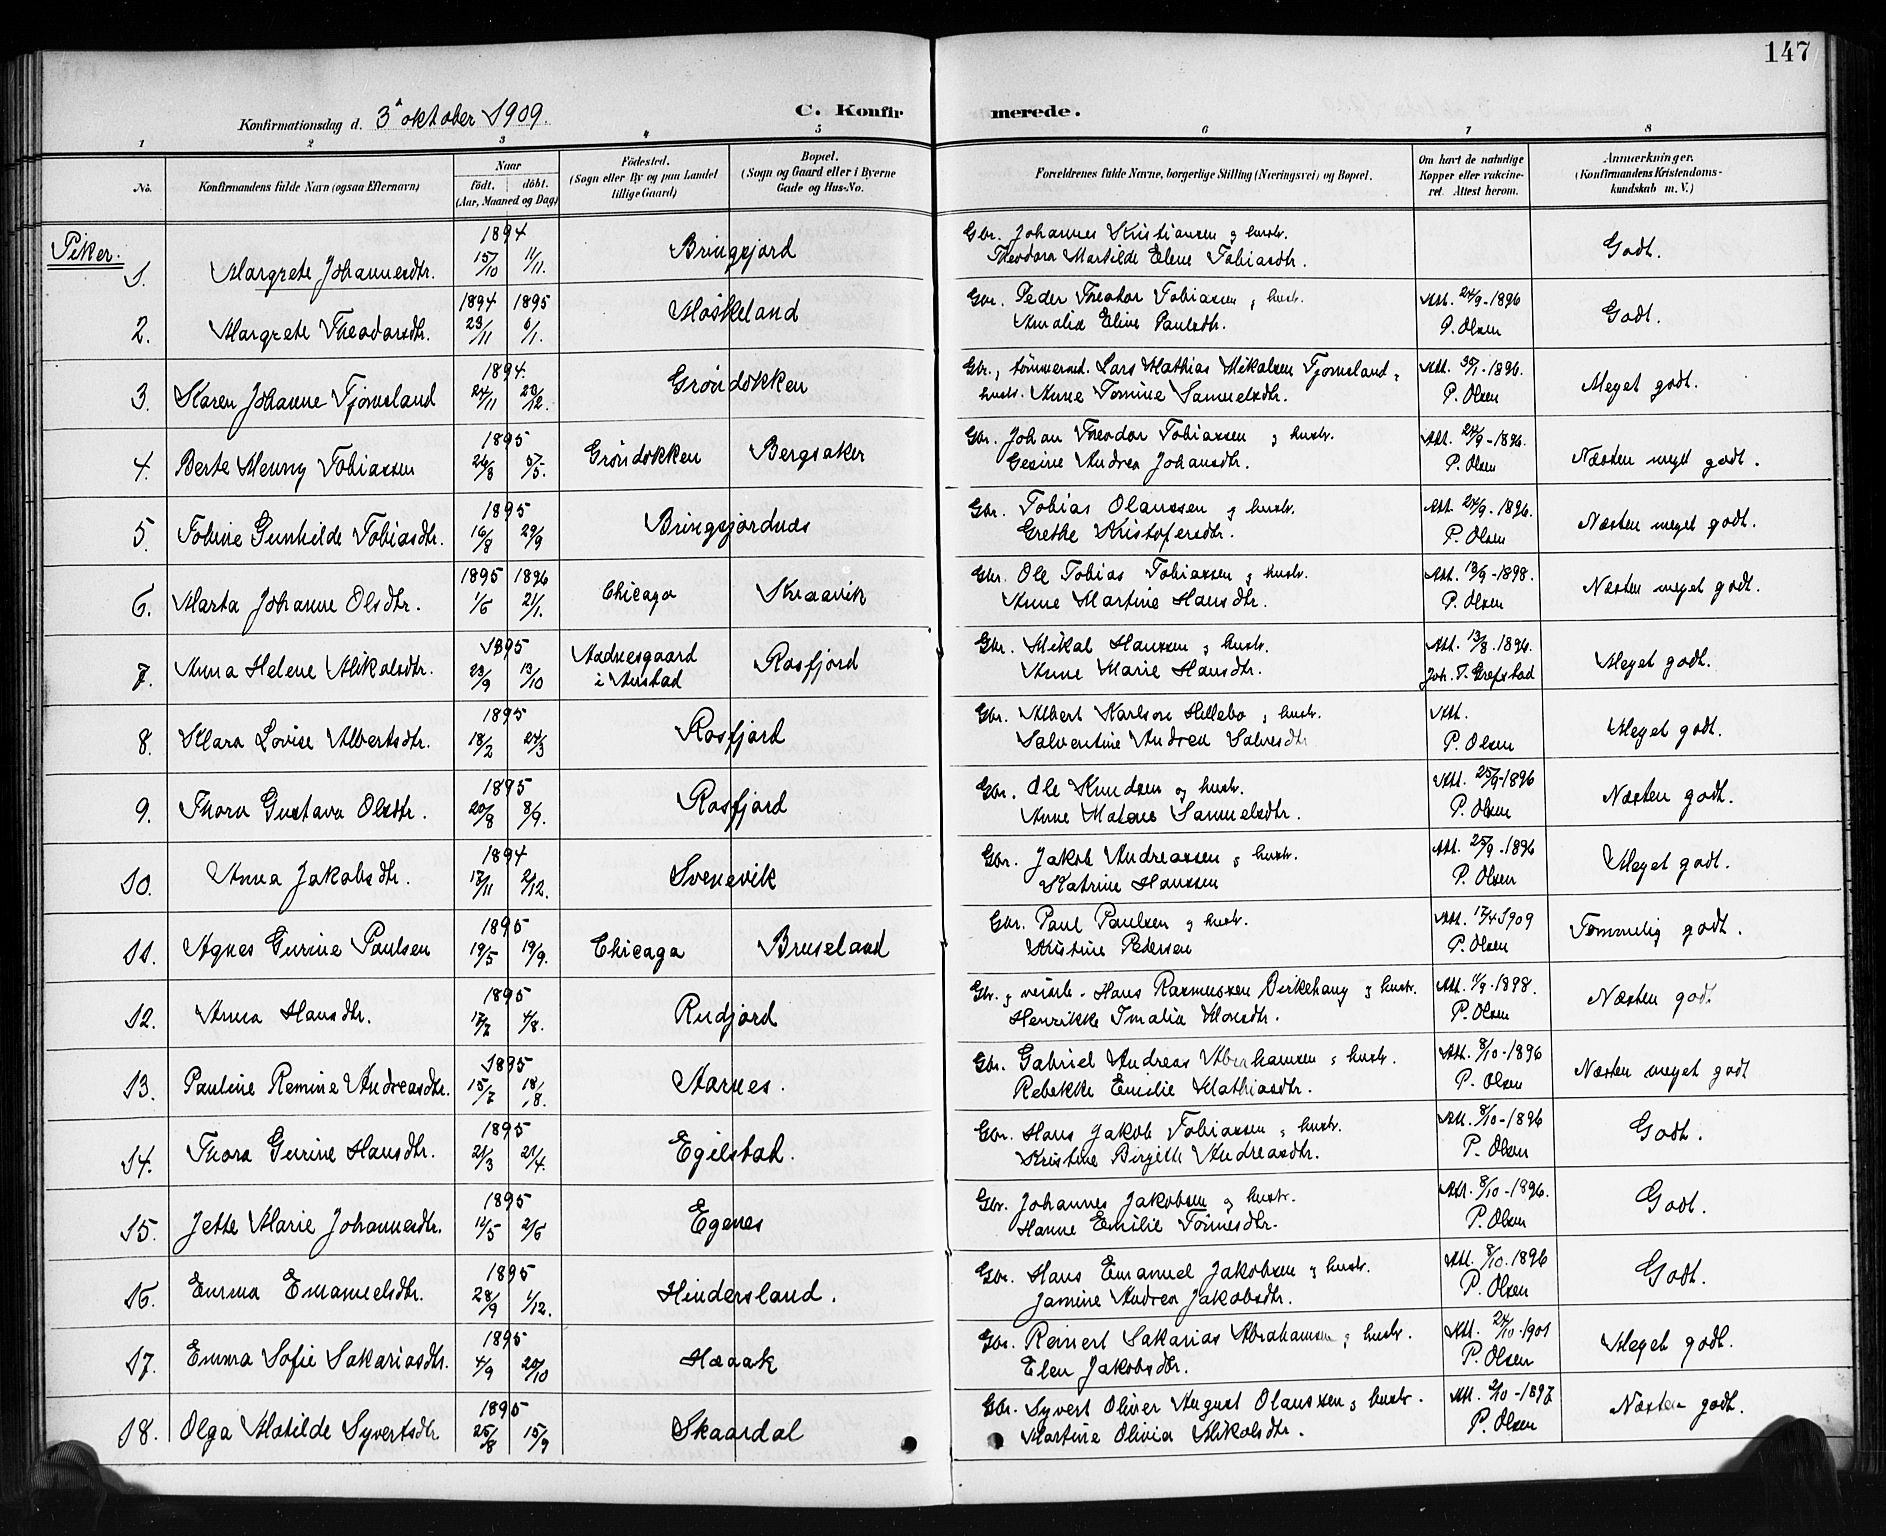 147
Konfirmationsdag d. 3å oktober 1909. C. Konfirmerede.
1 2 3 4 5 6 7 8
No. Konfirmandens fulde Navn (ogsaa Efternavn) Naar født. døbt. (Aar, Maaned og Dag) Fødested. (Sogn eller By og paa Landet tillige Gaard) Bopæl. (Sogn og Gaard eller i Byerne Gade og Hus-No. Forældrenes fulde Navne, borgerlige Stilling (Næringsvei) og Bopæl. Om havt de naturlige Kopper eller vaccineret. Attest herom. Anmærkninger. (Konfirmandens Kristendomskundskab m. V.)
Piker.
1. Margrete Johannesdtr. 1894 15/10 11/11. Bringsjord Gbr. Johannes Kristiansen og hustr. Theodora Martilde Elene Tobiasdtr. Godt.
2. Margrete Theodorsdtr. 1894 23/11 1895 6/1. Møskeland Gbr. Peder Theodor Tobiassen og hustr. Amalia Eline Paulsdtr. Att. 24/9-1896 P. Olsen Godt.
3. Karen Johanne Tjomsland 1894. 24/11 23/12. Grøndokken Gbr., tømmermd. Lars Mathias Mikalsen Tjomsland og hustr. Anne Tomine Samuelsdtr. Att. 1896. P. Olsen Meget godt.
4. Berte Menny Tobiassen 1895 26/3 5/5. Grøndokken Bergsaker Gbr. Johan Theodor Tobiassen og hustr. Gesine Andrea Johansdtr. Att. 24/9-1896. P. Olsen Næsten meget godt.
5. Tobine Gunhilde Tobiasdtr. 1895 16/8 29/9 Bringsjordnæs Gbr. Tobias Olaussen og hustr. Grethe Kristofersdtr. Att. 24/9-1896. P. Olsen Næsten meget godt.
6. Marta Johanne Olsdtr. 1895 1/6 1896 21/1. Chicago Kraavik Gbr. Ole Tobias Tobiassen og hustr. Anne Martine Hansdtr. Att. 13/9-1898. P. Olsen Næsten meget godt.
7. Anna Helene Mikalsdtr. 1895 23/9 13/10 Aadnesgaard i Austad Rosfjord Gbr. Mikal Hanssen og hustr. Anne Marie Hansdtr. Att. 13/8-1896. Joh. T. Grefstad Meget godt.
8. Klara Lovise Albertsdtr. 1895 18/2 24/3 Rosfjord Gbr. Albert Karlson Hillebo og hustr. Salventine Andrea Salvesdtr Att. P. Olsen Meget godt.
9. Thora Gustava Olsdtr. 1895 20/8 8/9. Rosfjord Gbr. Ole Knudsen og hustr. Anne Malene Samuelsdtr. Att. 25/9-1896 P. Olsen Næsten godt.
10. Anna Jakobsdtr. 1894 17/11 2/12. Svenevik Gbr. Jakob Andreassen og hustr. Katrine Hanssen Att. 25/9-1896 P. Olsen Meget godt.
11. Agnes Gurine Paulsen 1895 19/5 19/9. Chicago Bruseland Gbr. Paul Paulsen og hustr. Kristine Pedersen Att. 17/4 1909 P. Olsen Temmelig godt.
12. Anna Hansdtr. 1895 17/7 4/8. Rudjord Gbr. og veiarb. Hans Rasmussen Birkehaug og hustr. Henrikke Amalia Monsdtr. Att. 11/9-1898. P. Olsen Næsten godt.
13. Pauline Remine Andreasdtr. 1895 15/7 18/8. Aarnes. Gbr. Gabriel Andreas Abrahamsen og hustr. Rebekke Emilie Mathiasdtr. Att. 8/10-1896 P. Olsen Næsten meget godt
14. Thora Gurine Hansdtr. 1895 21/3 21/4. Egilstad. Gbr. Hans Jakob Tobiassen og hustr. Kristine Birgith Andreasdtr. Att. 8/10-1896 P. Olsen Godt.
15. Jette Marie Johannesdtr. 1895 12/5 2/6 Egenes Gbr. Johannes Jakobsen og hustr. Hanne Emilie Tønnesdtr. Att. 8/10-1896. P. Olsen Godt.
16. Emma Emanuelsdtr. 1895 28/9 1/12. Hindersland. Gbr. Hans Emanuel Jakobsen og hustr. Jamine Andrea Jakobsdtr. Att. 8/10-1896 P. Olsen Godt.
17. Emma Sofie Sakariasdtr. 1895 4/9 20/10 Haaak Gbr. Reinert Sakarias Abrahamsen og hustr. Elen Jakobsdtr. Att. 24/10-1901 P. Olsen Meget godt.
18. Olga Matilde Syvertsdtr 1895 25/8 15/9 Skaardal Gbr. Syvert Oliver August Olaussen og hustr. Martine Olivia Mikalsdtr. Att. 2/10-1897 P. Olsen Næsten godt.